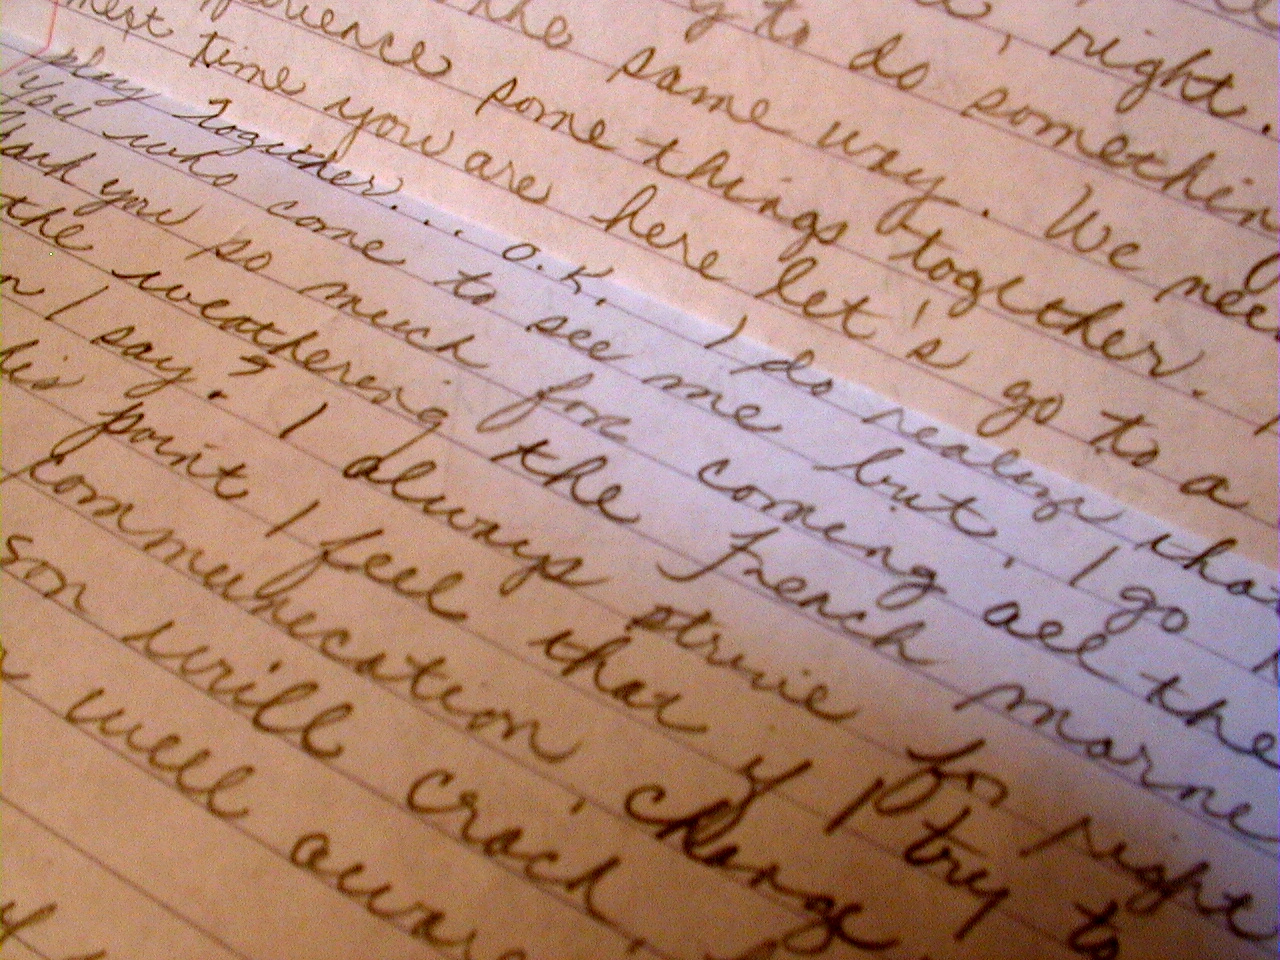 , right.
y to do somethin
the same way. We nee
some things together.
next time you are here let's go to a
play together... O.K. I do realize that
You who come to see me but, I go
you so much for coming all the
the weathering the French marne
I say? I always strive for right
his point I feel that if I try to
communication, change
son will crack,
well aware